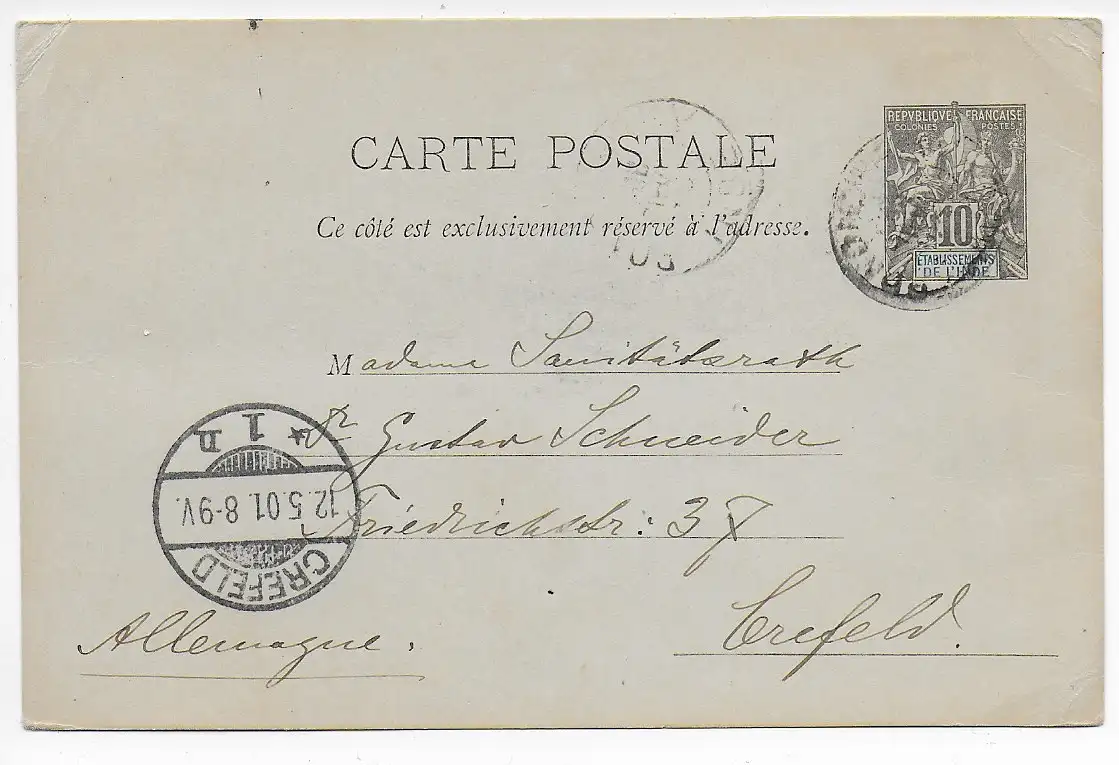 CARTE POSTALE
Ce côté est exclusivement réservé à l'adresse.
REPVBLIQVE FRANÇAISE
COLONIES POSTES
10
ÉTABLISSEMENTS
DE L'INDE
Madame Sanitätsrath
Dr Gustav Schneider
Friedrichstr: 37
Crefeld.
Allemagne.
CREFELD
12.5.01.8-9V.
* 1 D